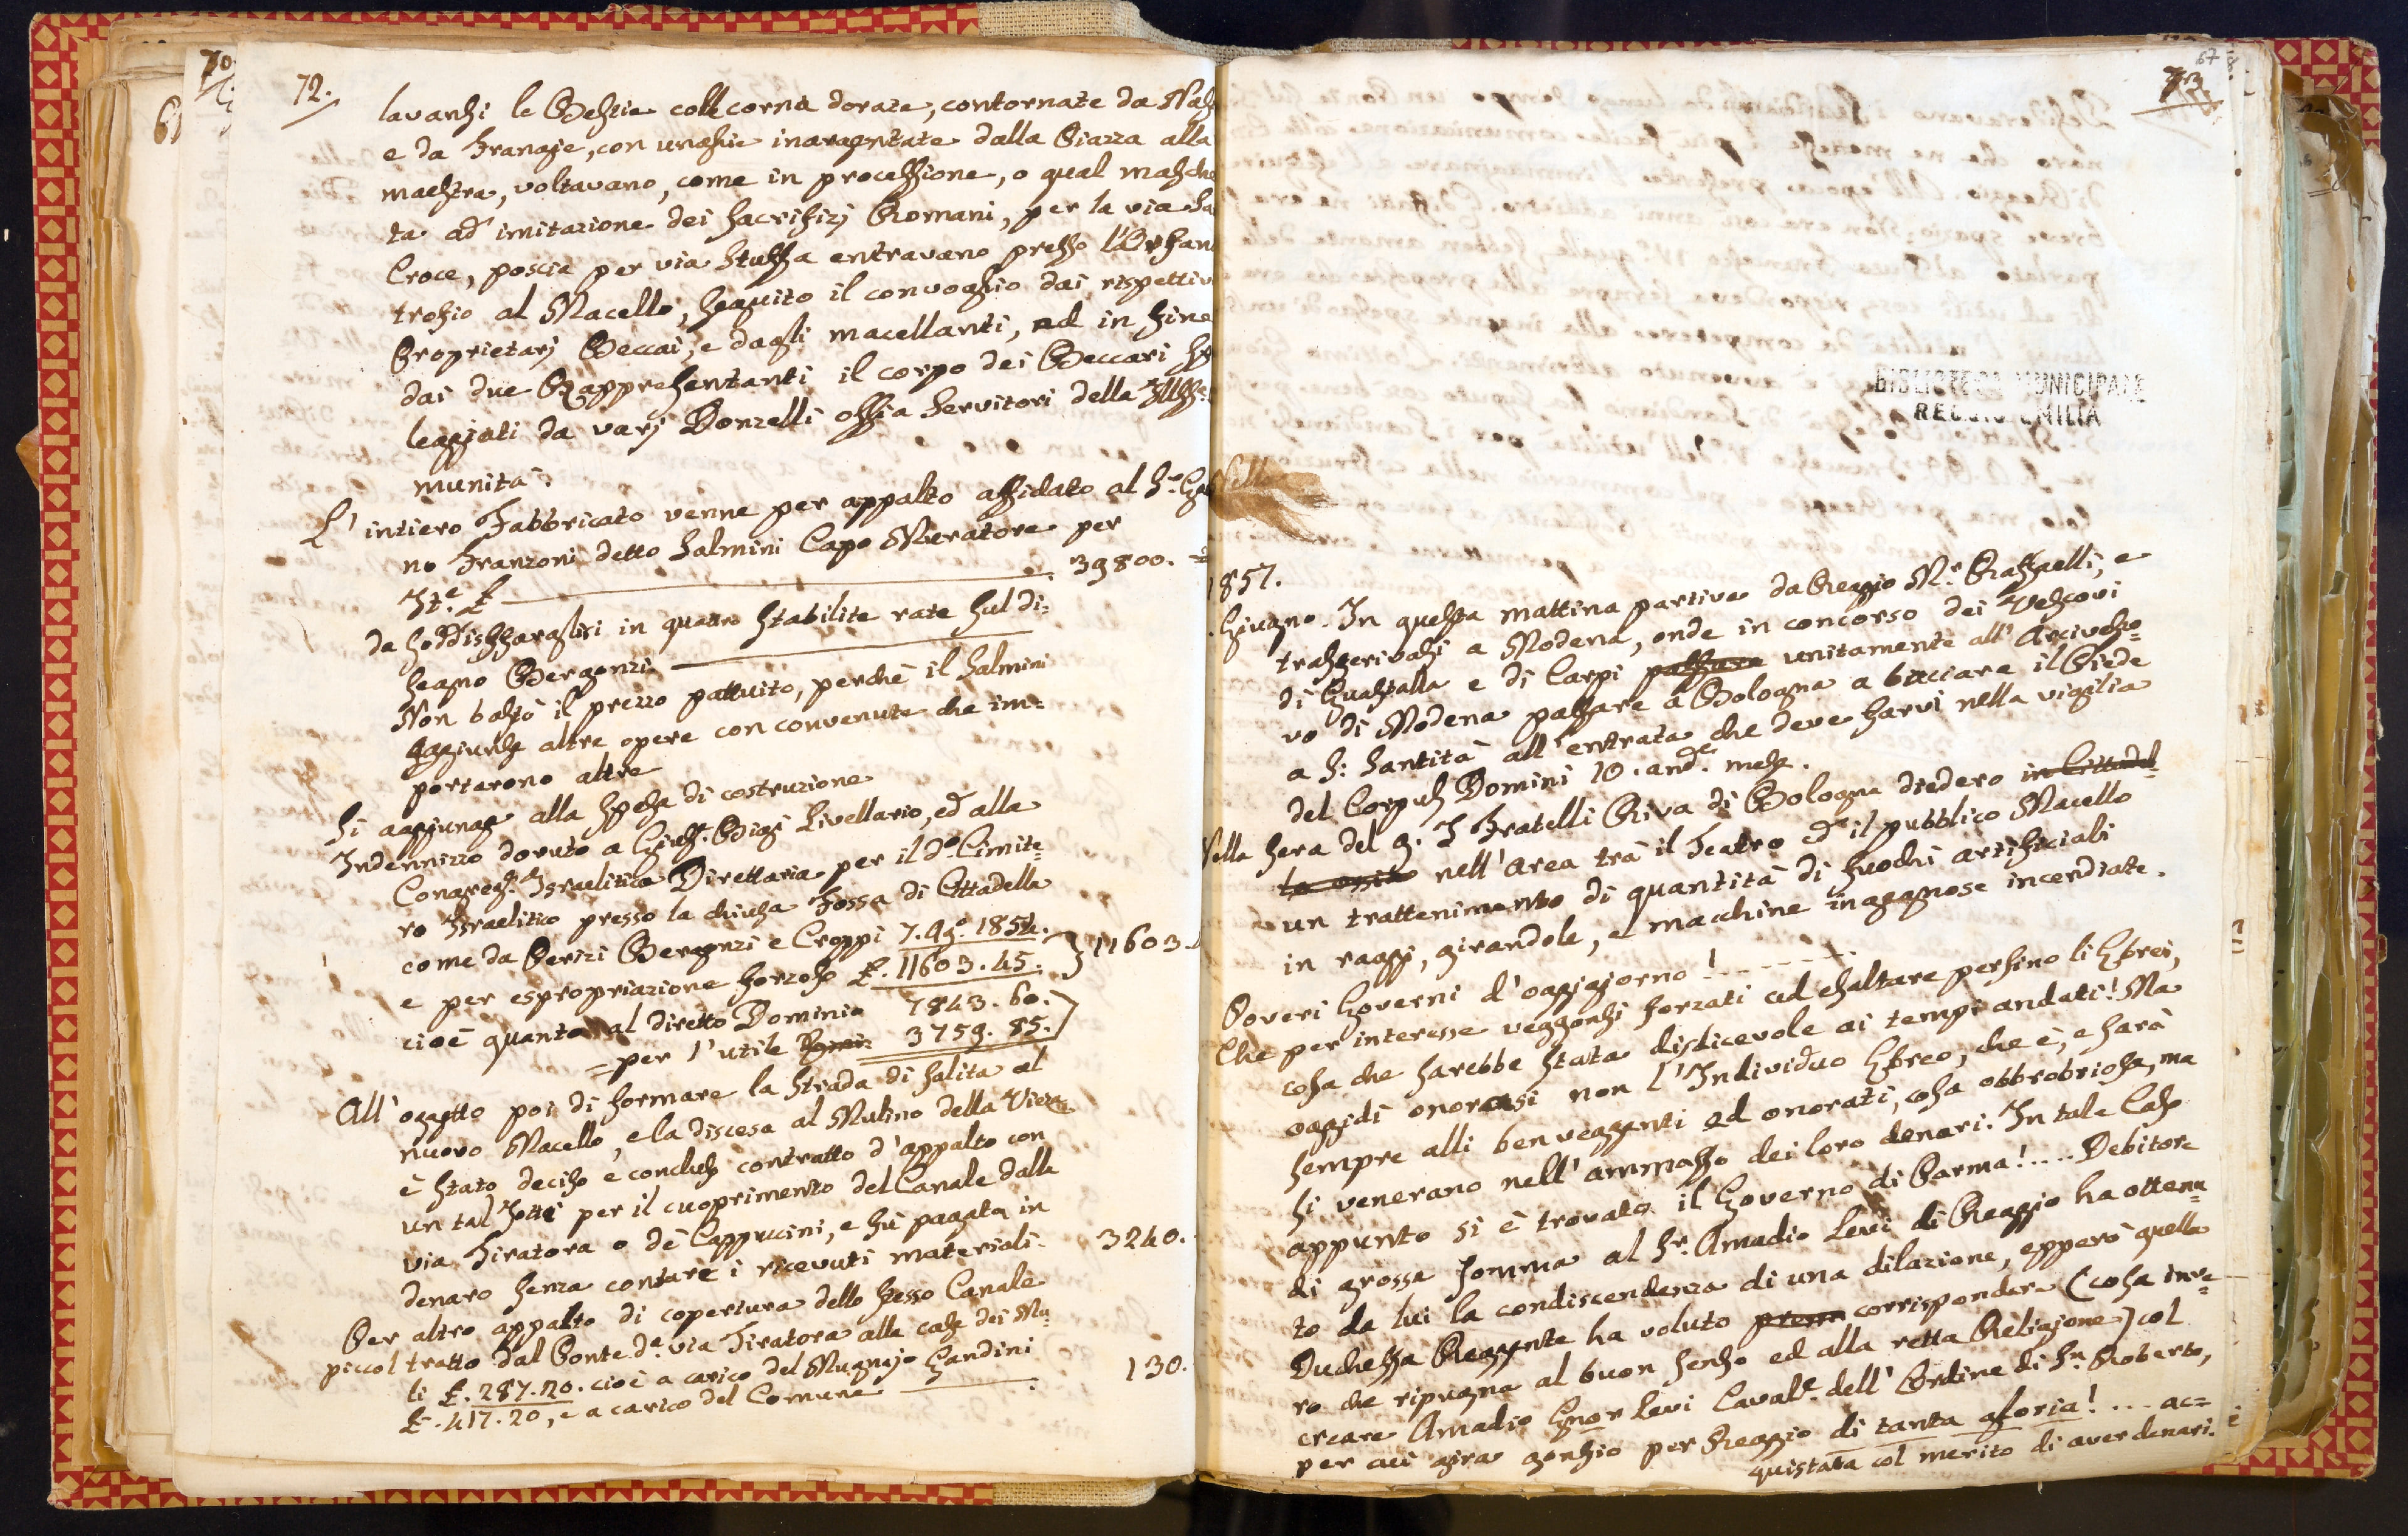 70
72.
lavansi le Bestie colle corna dorate, contornate da
e da Frangie, con unghie inargentate dalla Piazza alla
maestra, voltavano, come in processione, o qual masche
ta ad imitazione dei Sacrifizj Romani, per la via Sa
Croce, poscia per via Stuffa entravano presso l'Orfan
trofio al Macello, seguito il convoglio dai rispettiv
Proprietarj Beccai, e dagli macellanti, ed in fine
dai due Rappresentanti il corpo dei Beccari
leggiati da varj Donzelli ossia Servitori della
munità.
L'intiero Fabbricato venne per appalto affidato al Sr.
no Franzoni detto Salmini Capo Muratore per
It.e £ 39800.
da soddisffarglisi in quattro stabilite rate sul di=
segno Bergonzi
Non bastò il prezzo pattuito, perchè il Salmini
aggiunse altre opere con convenute che im=
portarono altre
Si aggiunge alla spesa di costruzione
Indennizzo dovuto a Gius. Bigi Livellario, ed alla
Congreg. Israelitica Direttaria per il do. Cimite=
ro Israelitico presso la chiusa Fossa di Cittadella
come da Perizi Bergonzi e Croppi 7. Ago. 1854.
e per espropriazione forzosa £. 11603.45. } 11603.
cioè quanto al diretto Dominio 7843.60.
= per l'utile Domin 3759.85.
All'oggetto poi di formare la strada di salita al
nuovo Macello, e la discesa al Mulino della
è stato deciso e concluso contratto d'appalto con
un tal Jotti per il cuoprimento del Canale dalla
via Tiratora o dè Cappucini, e fù pagata in
denaro senza contare i ricevuti materiali. 3240.
Per altro appalto di copertura dello stesso Canale
piccol tratto dal Ponte da. via Tiratora alle case dei Mu=
li £. 287.20. cioè a carico del Mugnajo Gandini
£. 417.20, e a carico del Comune 130.
67
73
BIBLIOTECA MUNICIPALE
REGGIO EMILIA
Nella
1857.
Giugno. In questa mattina partiva da Reggio M.r Raffaelli, e
trasferivasi a Modena, onde in concorso dei Vescovi
di Guastalla e di Carpi passare unitamente all'Arcivesco=
vo di Modena passare a Bologna a bacciare il Piede
a S: Santità all'entrata che deve farvi nella vigilia
del Corpus Domini 10. and.e mese.
Nella sera del 9. I Fratelli Riva di Bologna diedero in Cittadel=
la ossia nell'area trà il Teatro ed il pubblico Macello
un trattenimento di quantità di fuochi artificiali
in raggi, girandole, e macchine ingegnose incendiate.
Poveri Governi d'oggigiorno!
Che per interesse veggonsi forzati ad esaltare persino li Ebrei,
cosa che sarebbe stata disdicevole ai tempi andati! Ma
oggidì onorasi non l'Individuo Ebreo, che è, e sarà
sempre alli ben veggenti ed onorati, cosa obbrobriosa, ma
si venerano nell'ammasso dei loro denari. In tale Caso
appunto si è trovato il Governo di Parma!.... Debitore
di grossa somma al Sr. Amadio Levi di Reggio ha ottenu=
to da lui la condiscendenza di una dilazione, epperò quella
Duchessa Reggente ha voluto prem corrispondere (cosa inve=
ro che ripugna al buon senso ed alla retta Religione) col
creare Amadio Gnor Levi Caval.e dell'Ordine di Sn. Roberto,
per cui gira gonfio per Reggio di tanta gloria!... ac=
quistata col merito di aver denari.